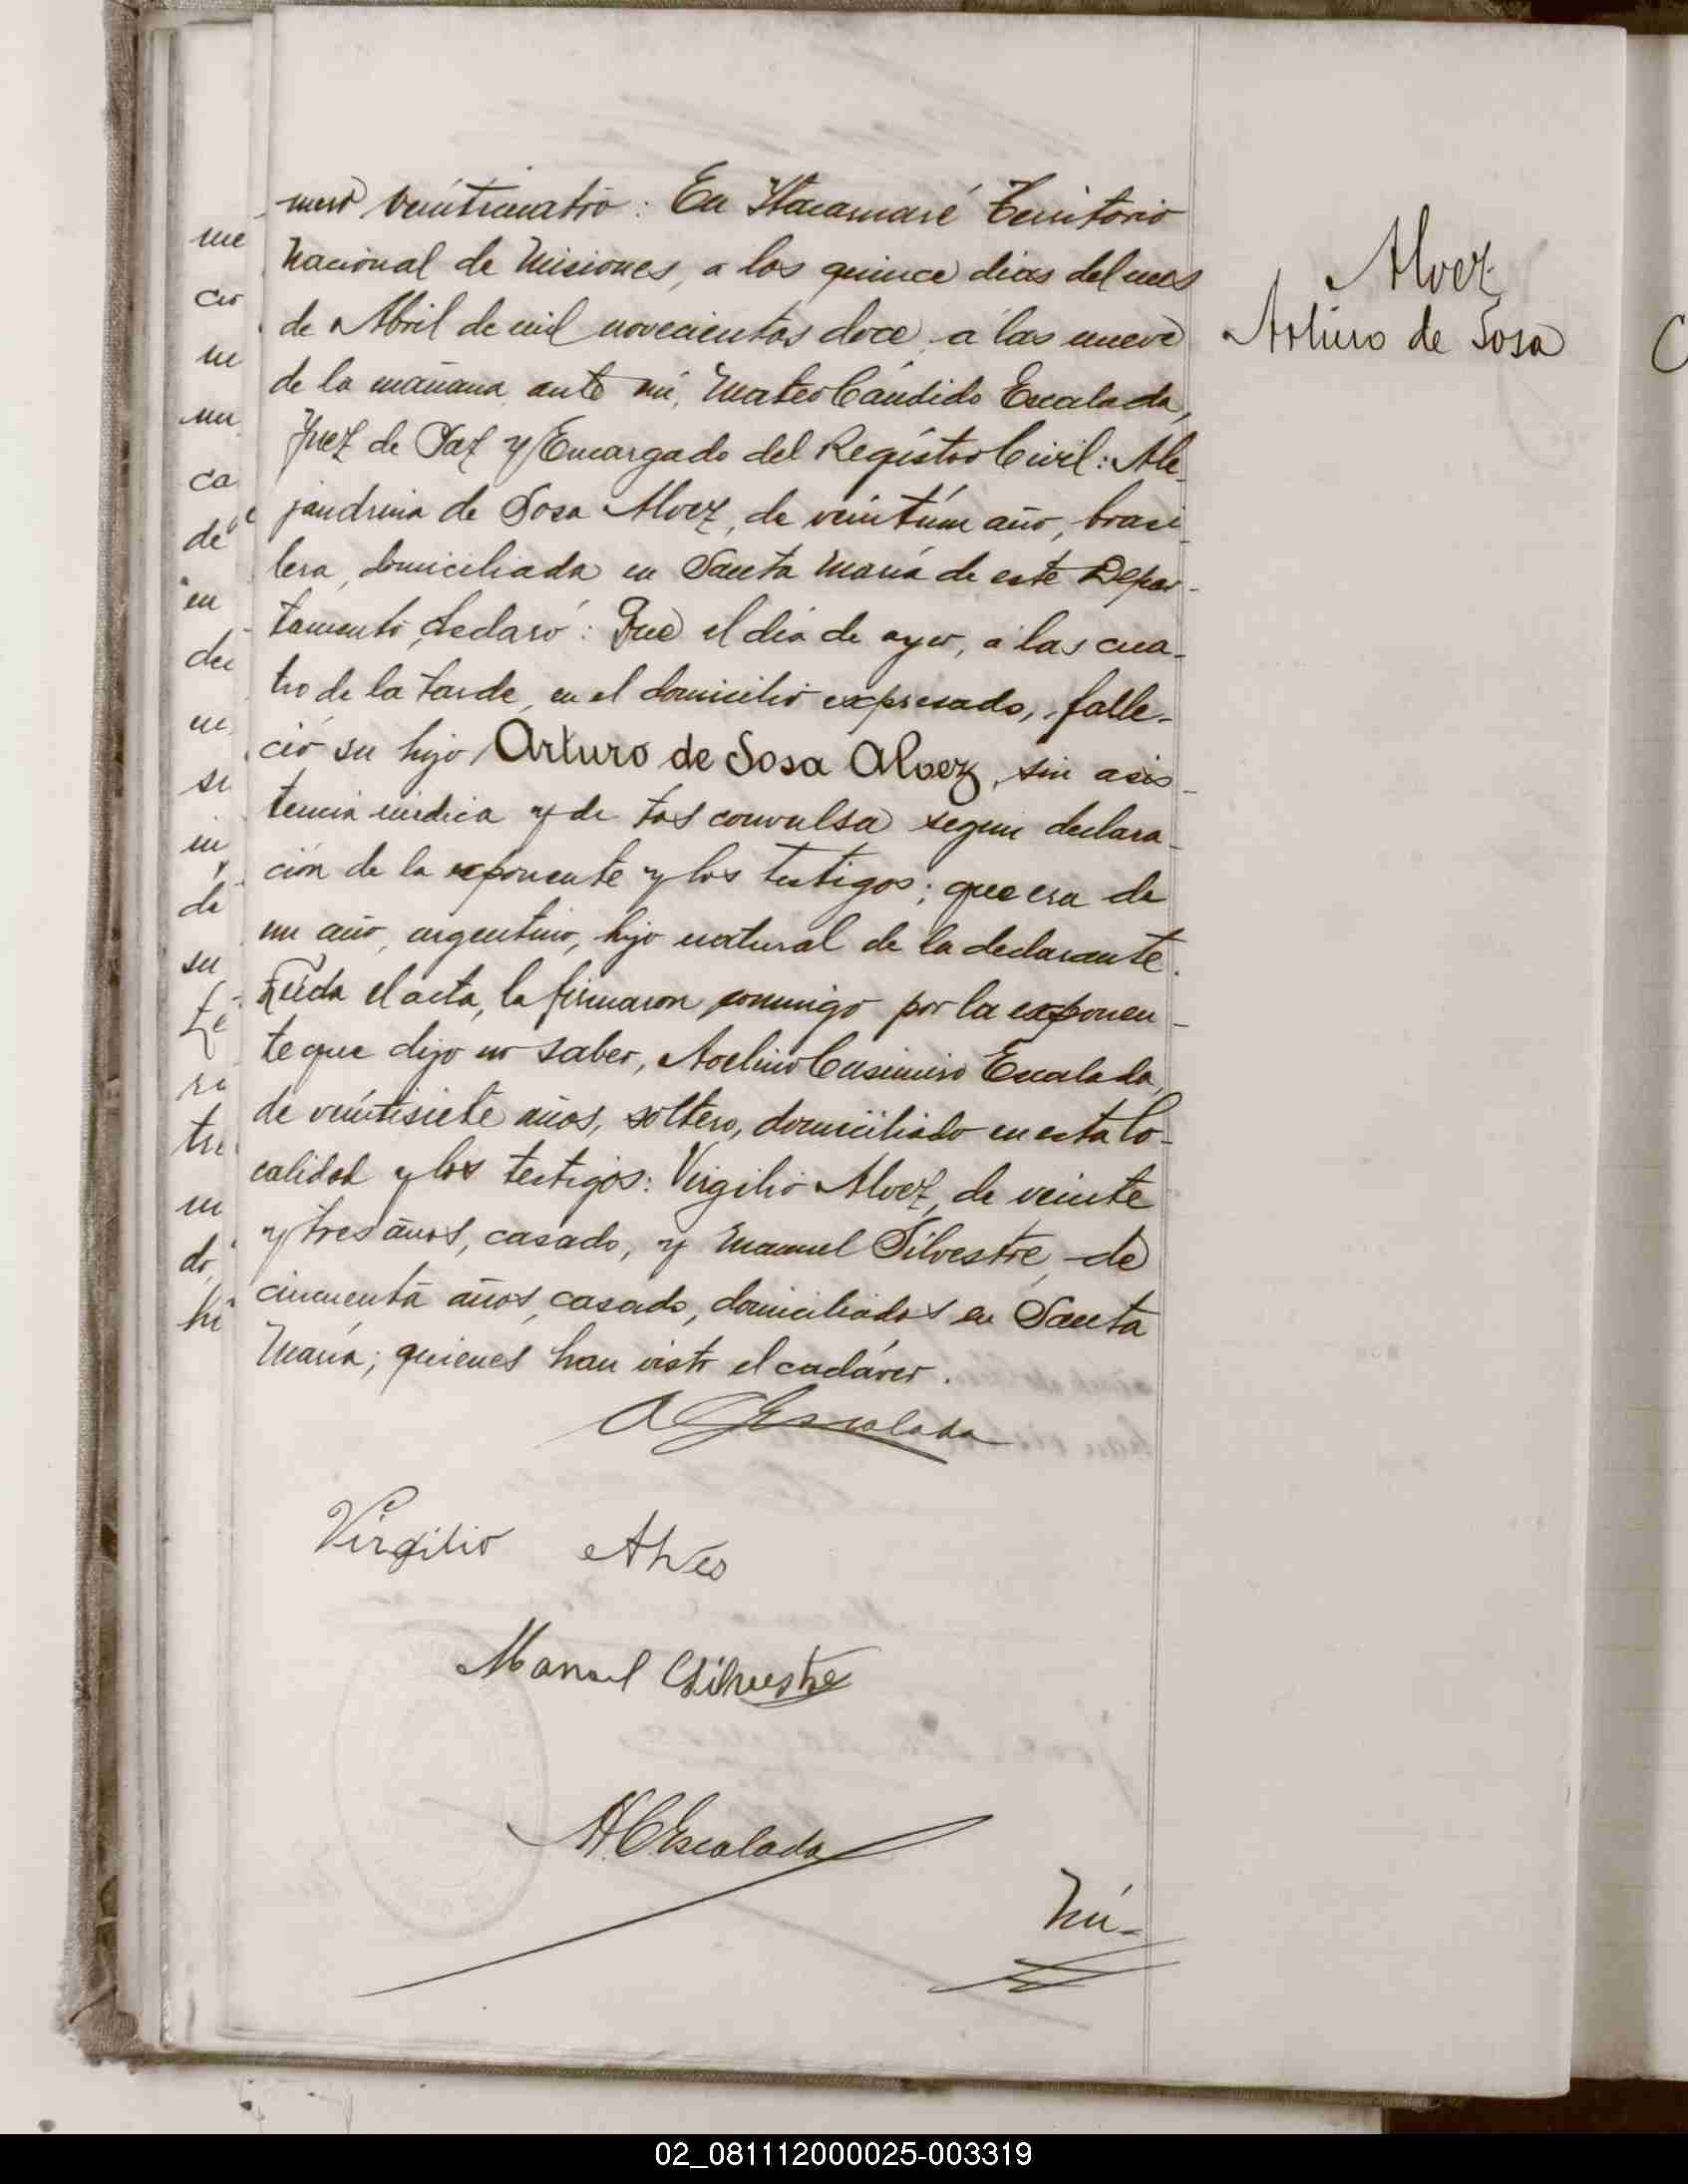 mero veinticuatro: En Itacaruaré Territorio
Nacional de Misiones, a los quince dias del mes
de Abril de mil novecientos doce, a las nueve
de la mañana, ante mí, Mateo Cándido Escalada,
Juez de Paz y Encargado del Registro Civil: Ale-
jandrina de Sosa Alvez, de veintiún año, brasi-
lera, domiciliada en Santa María de este Depar-
tamento, declaró: Que el día de ayer, a las cua-
tro de la tarde, en el domicilio expresado, falle-
ció su hijo Arturo de Sosa Alvez, sin asis-
tencia médica y de tos convulsa segun declara-
ción de la exponente y los testigos; que era de
un año, argentino, hijo natural de la declarante.
Leída el acta, la firmaron conmigo por la exponen-
te que dijo no saber, Avelino Casimiro Escalada,
de veintisiete años, soltero, domiciliado en esta lo-
calidad y los testigos: Virgilio Alvez, de veinte
y tres años, casado, y Manuel Silvestre, de
cincuenta años, casado, domiciliados en Santa
María; quienes han visto el cadáver.
A C Escalada
Virgilio Alves
Manuel Silvestre
M. C. Escalada
Nú-
Alvez
Arturo de Sosa
me
cio
ca
de
en
su
de
su
Le
tre
do
hi
02_081112000025-003319